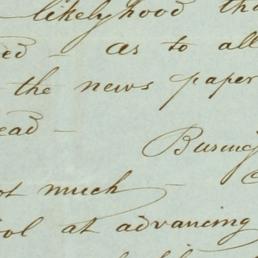 likelyhood tha
ed – as to all
the news paper
ead –
Busines
ot much –
ol at advancing